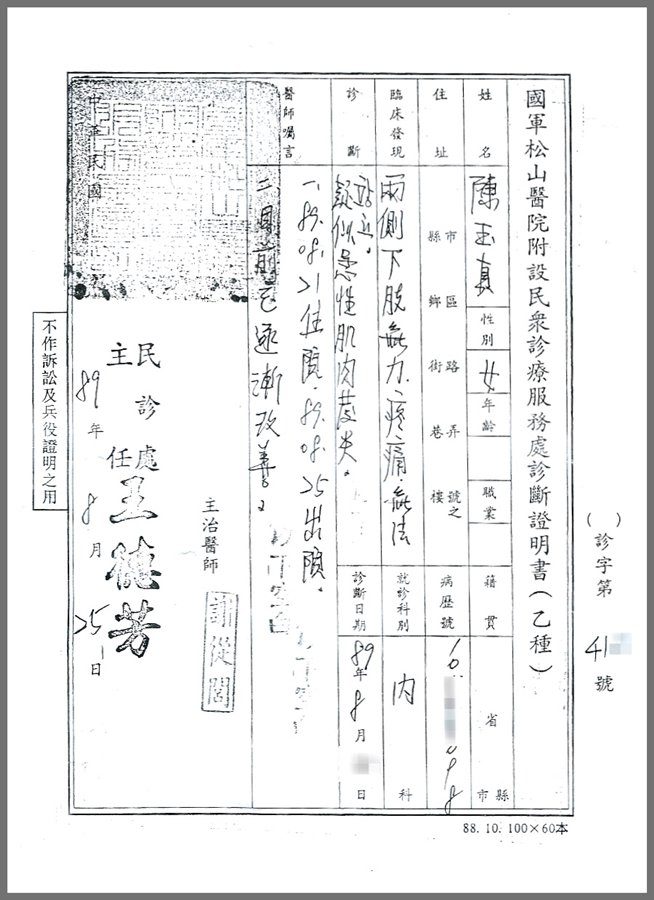 ( )診字第41 號
國軍松山醫院附設民眾診療服務處診斷證明書(乙種)
姓名 陳玉真 性別 女 年齡 職業 籍貫 省 縣市
住址 縣市 鄉區 街路 巷弄 樓號之 病歷號
臨床發現 兩側下肢無力.疼痛.無法站立。 就診科別 內 科
診斷 疑似急性肌肉發炎。 診斷日期 89年8月 日
醫師囑言 一、89.08.21住院.89.08.25出院。
二、目前已逐漸改善。
主治醫師 謝從閣
中華民國
民診處主任 王德芳
89年8月25日
不作訴訟及兵役證明之用
88.10.100×60本